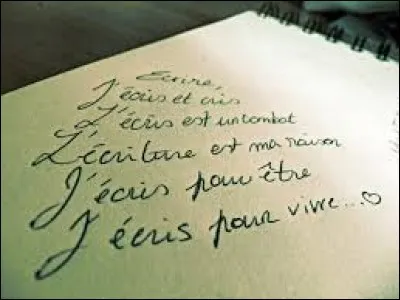 Ecrire,
J'écris et cris
L'écris est un combat
L'écriture est ma raison
J'écris pour être
J'écris pour vivre...♡